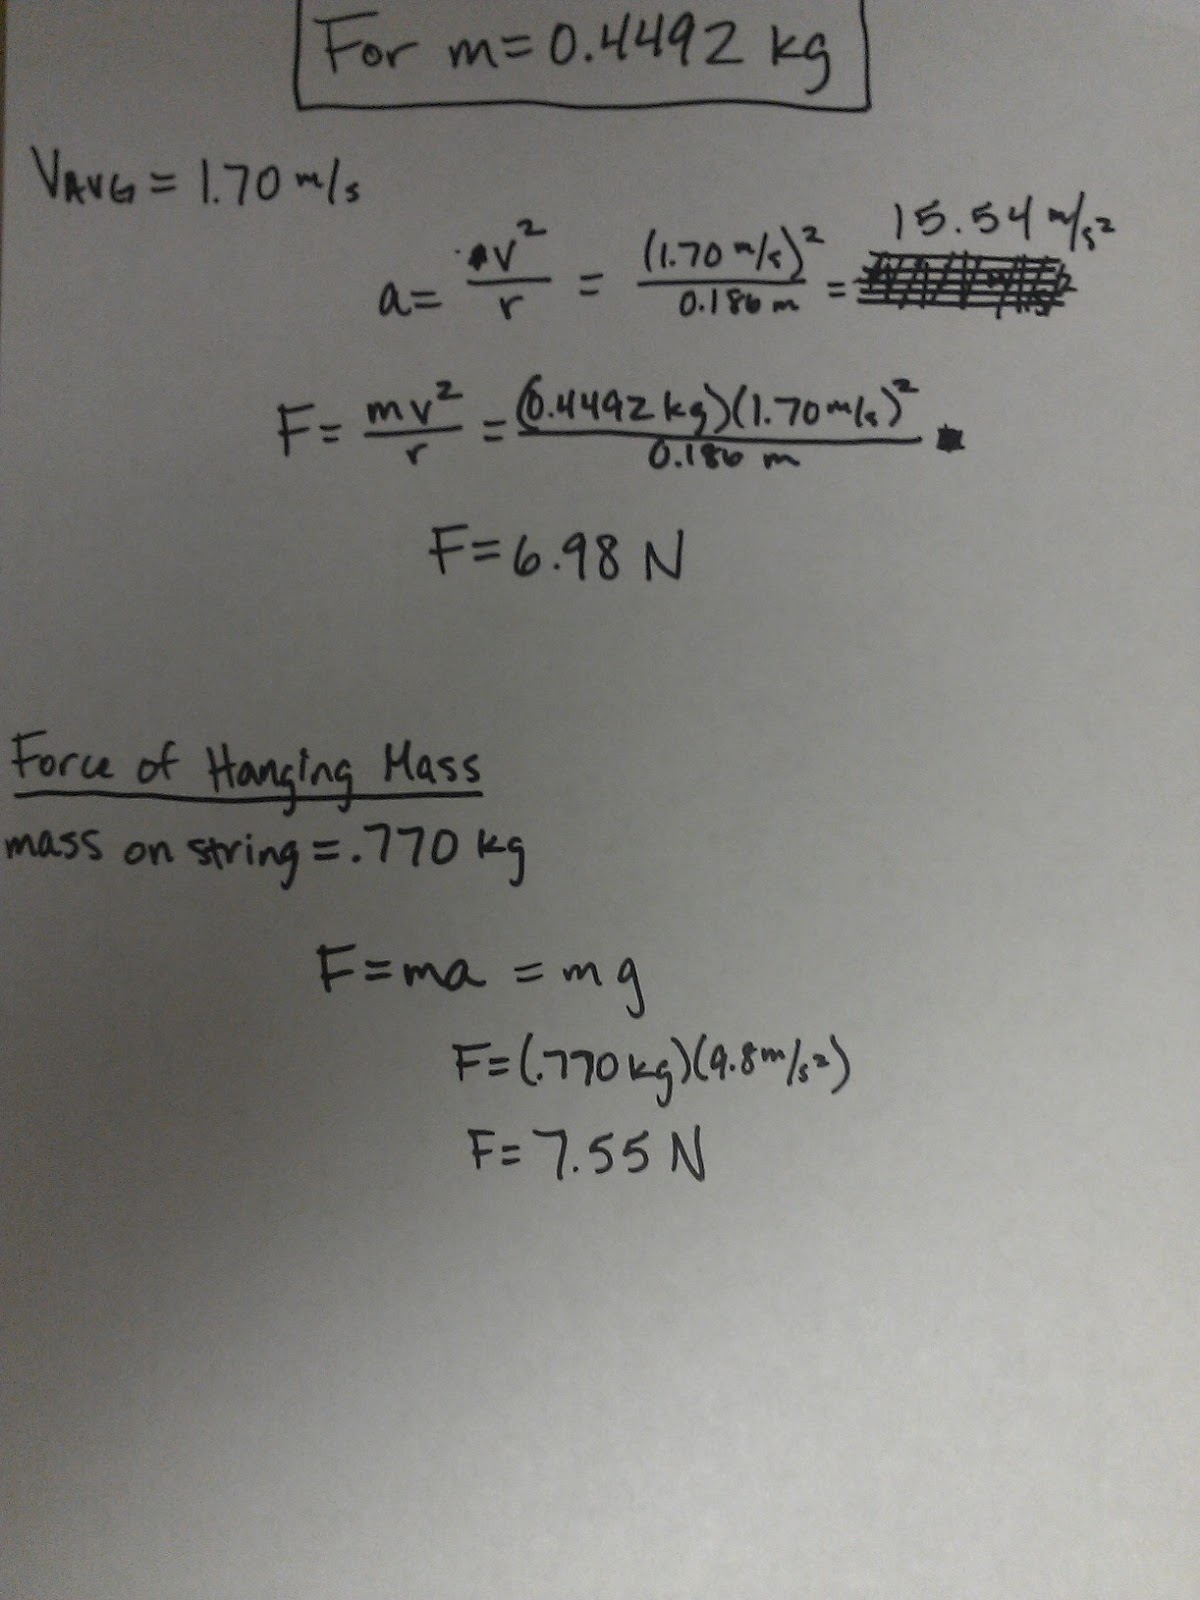 For m=0.4492 kg
VAVG = 1.70 m/s
a= v²/r = (1.70 m/s)²/0.186 m = 15.54 m/s²
F= mv²/r = (0.4492 kg)(1.70 m/s)²/0.186 m
F=6.98 N
Force of Hanging Mass
mass on string =.770 kg
F=ma = mg
F=(.770 kg)(9.8 m/s²)
F= 7.55 N